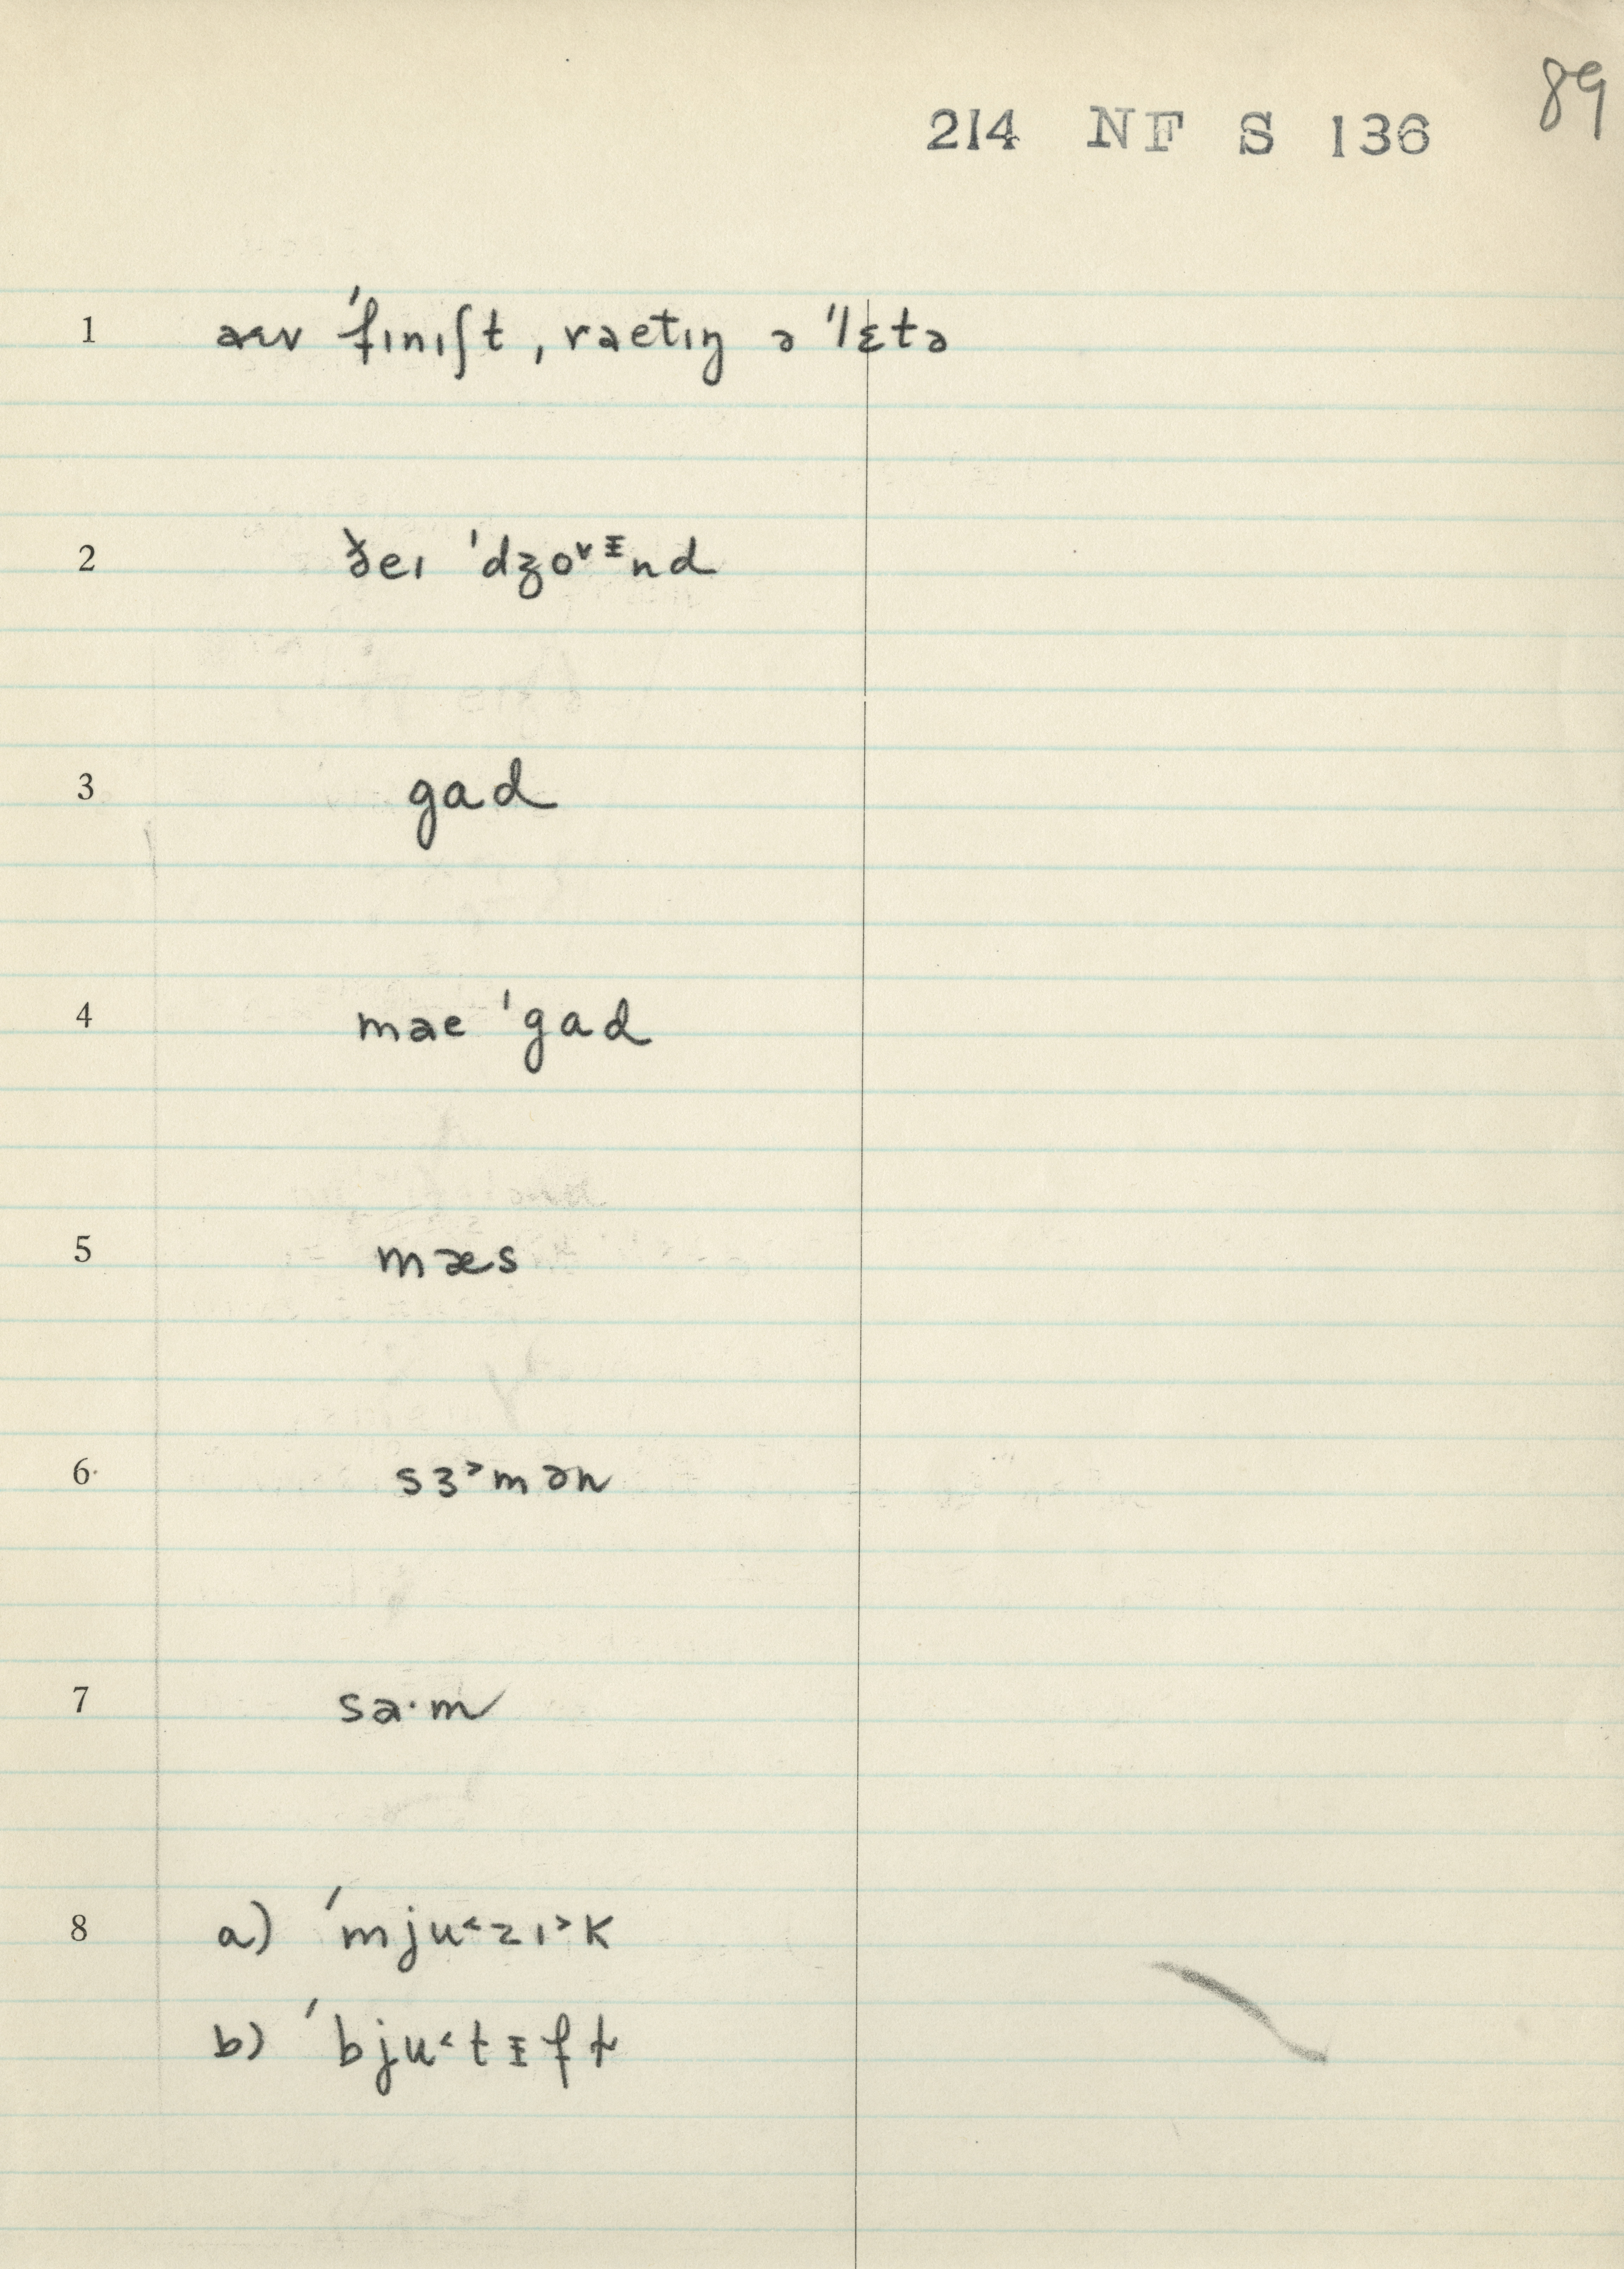 89
214 NF S 136
1 aɛv ˈfɪnɪʃt, raetɪŋ ə ˈlɛtə
2 ðeɪ ˈdʒo˅ᵻnd
3 gad
4 mae ˈgad
5 mæs
6 sɜ˃mən
7 sa·m
8 a) ˈmju˂zɪ˃k
b) ˈbju˂tᵻft